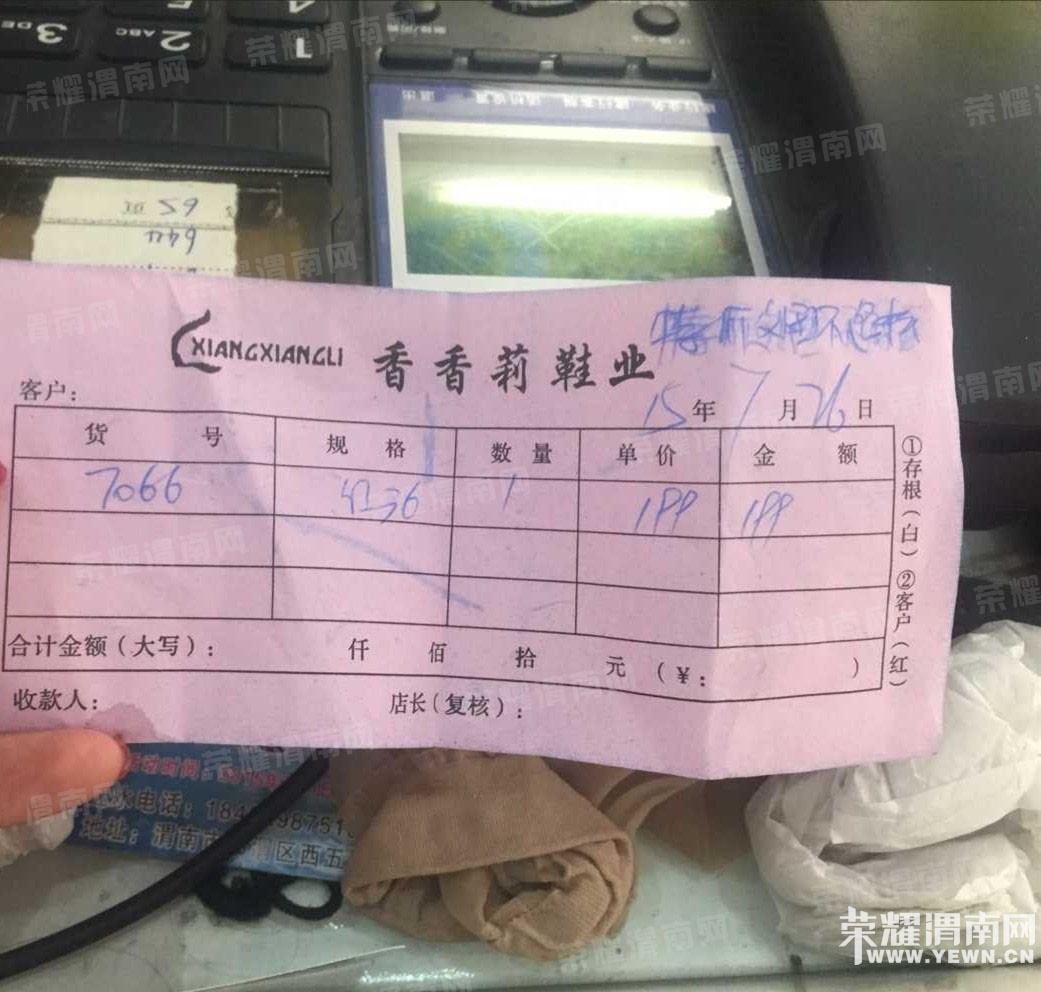 荣耀渭南网
3 DEF
2 ABC
1
65
644
XIANGXIANGLI 香香莉鞋业
客户：
15年7月26日
货号 规格 数量 单价 金额
7066 红36 1 199 199
合计金额（大写）： 仟 佰 拾 元（¥： ）
收款人： 店长（复核）：
①存根（白）②客户（红）
地址：渭南市
区西五
荣耀渭南网
WWW.YEWN.CN